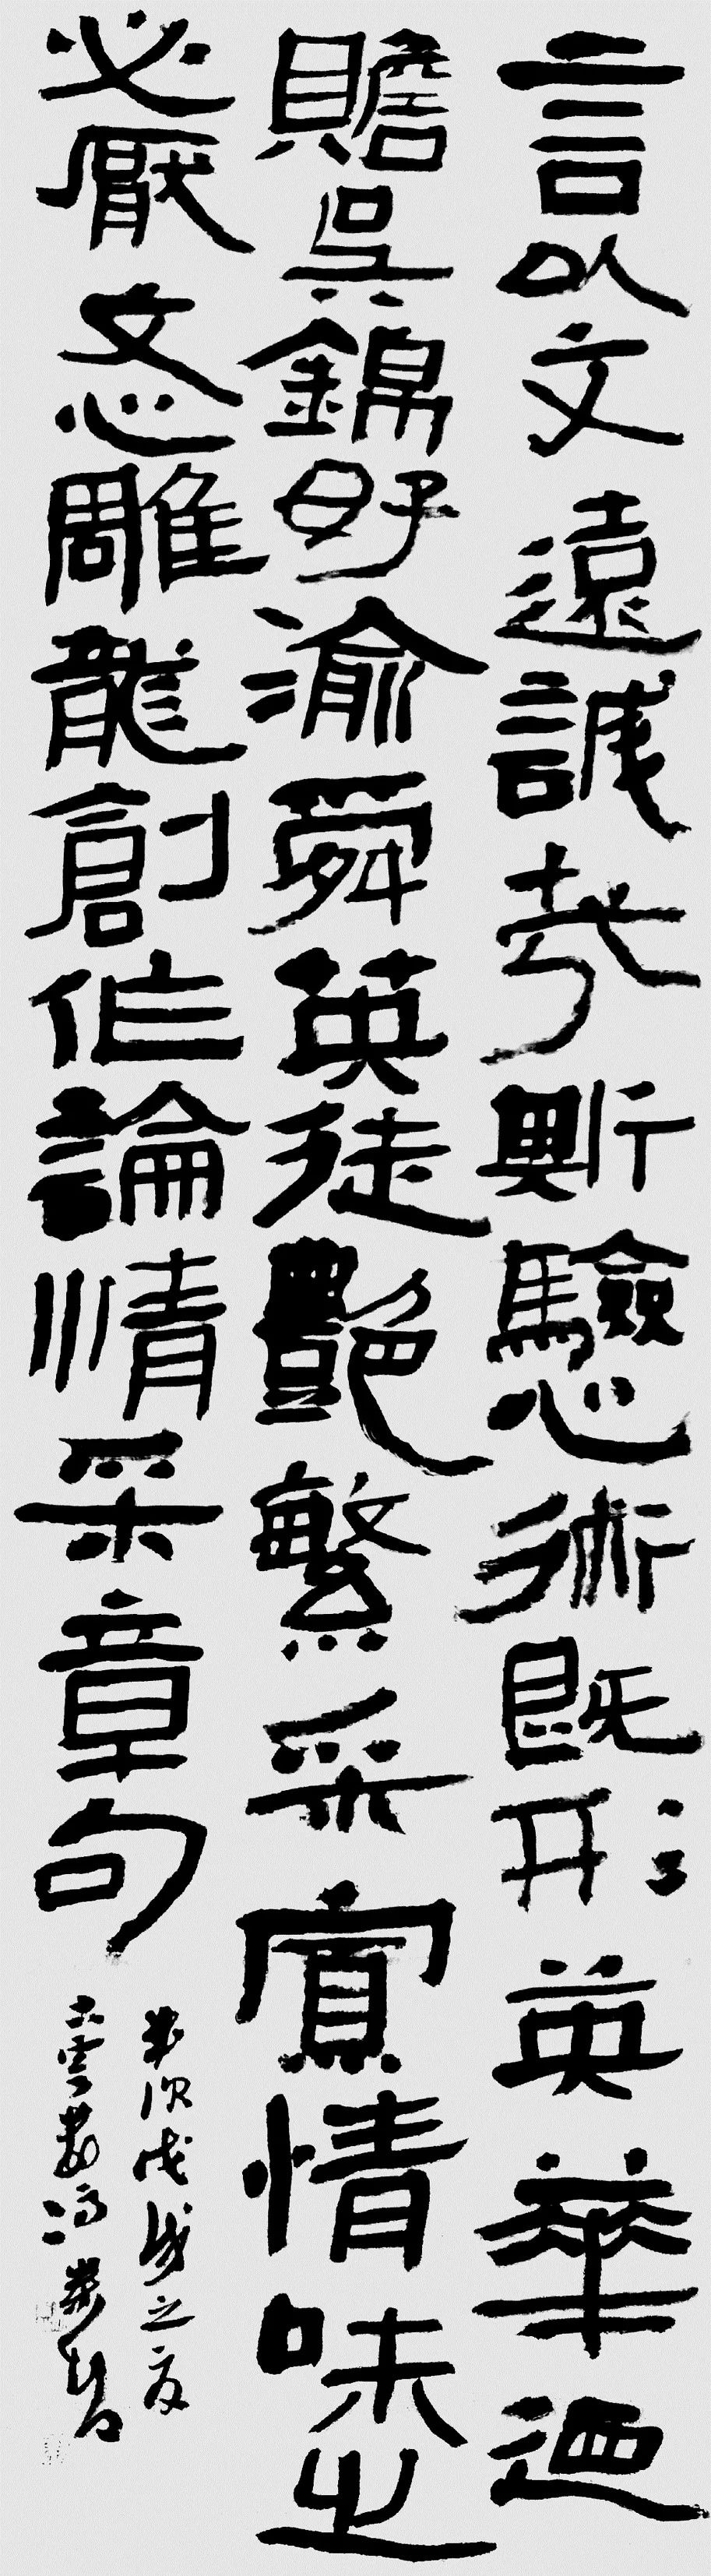 言以文遠誠哉斯驗心術既形英華迺
贍吳錦好渝舜英徒艷繁采寡情味之
必厭文心雕龍創作論情采章句
歲次戊戌之夏
雲夢馮書